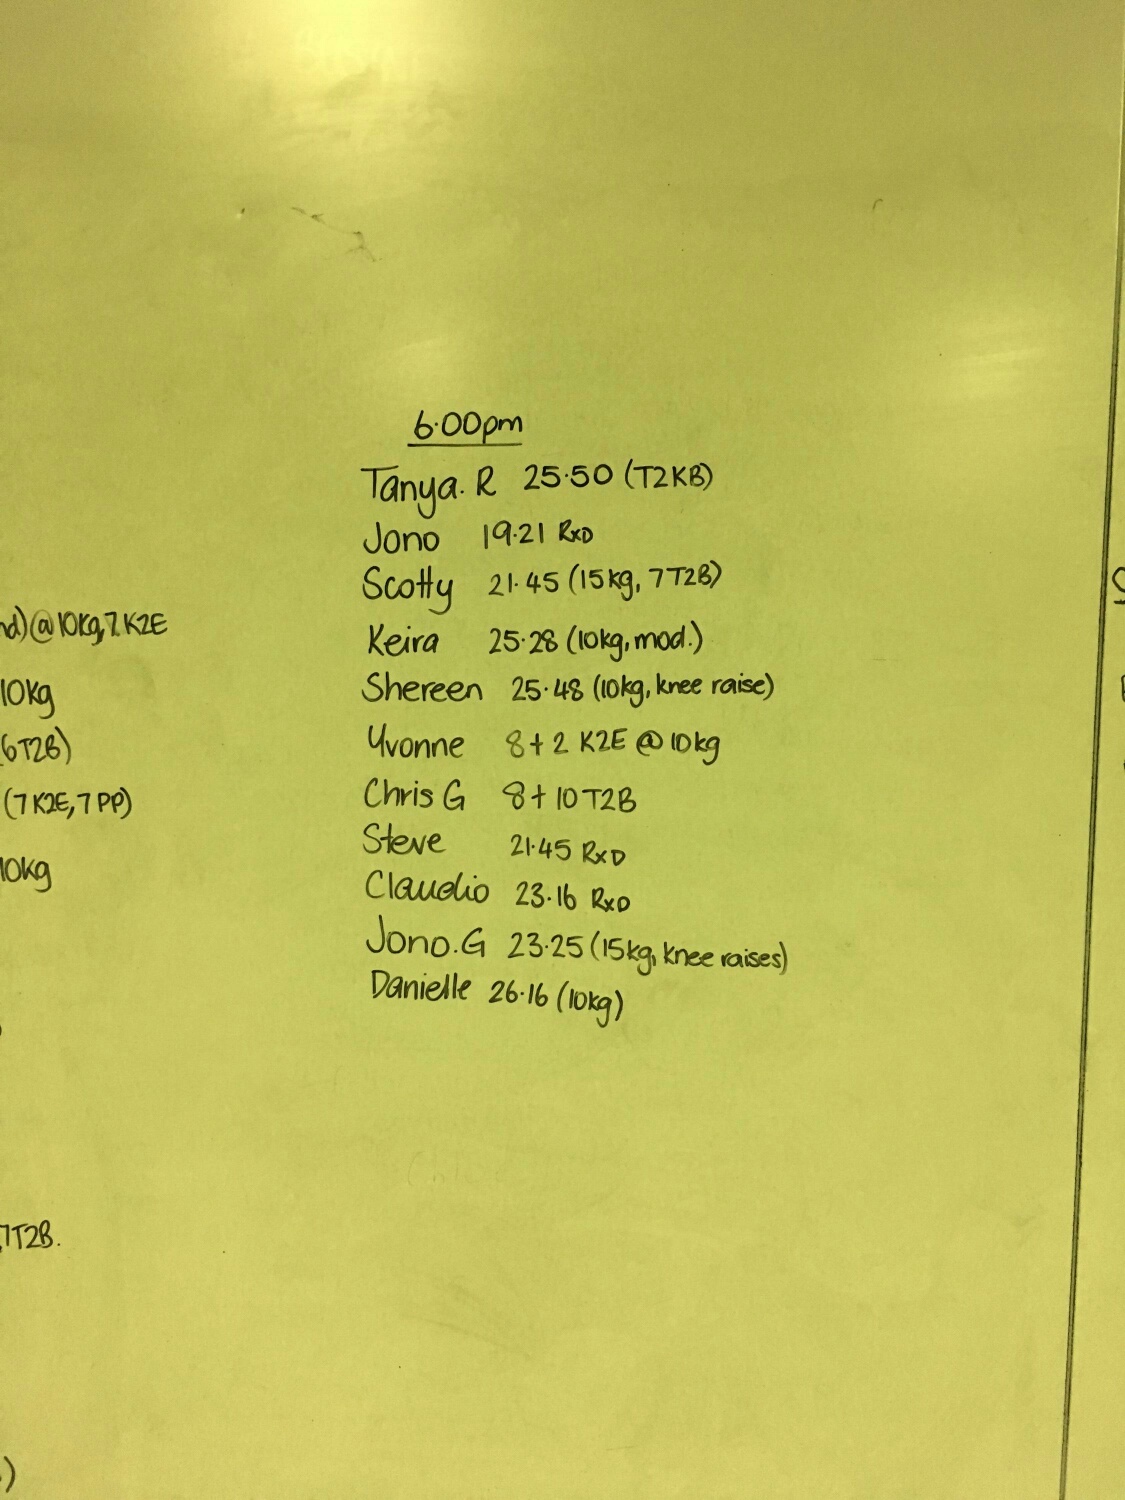 6.00pm
Tanya. R 25.50 (T2KB)
Jono 19.21 RxD
Scotty 21.45 (15kg, 7 T2B)
Keira 25.28 (10kg, mod.)
Shereen 25.48 (10kg, knee raise)
Yvonne 8 + 2 K2E @ 10kg
Chris G 8 + 10 T2B
Steve 21.45 RxD
Claudio 23.16 RxD
Jono.G 23.25 (15kg, knee raises)
Danielle 26.16 (10kg)
@10kg, 7 K2E
10kg
6T2B)
(7 K2E, 7 PP)
10kg
7T2B.